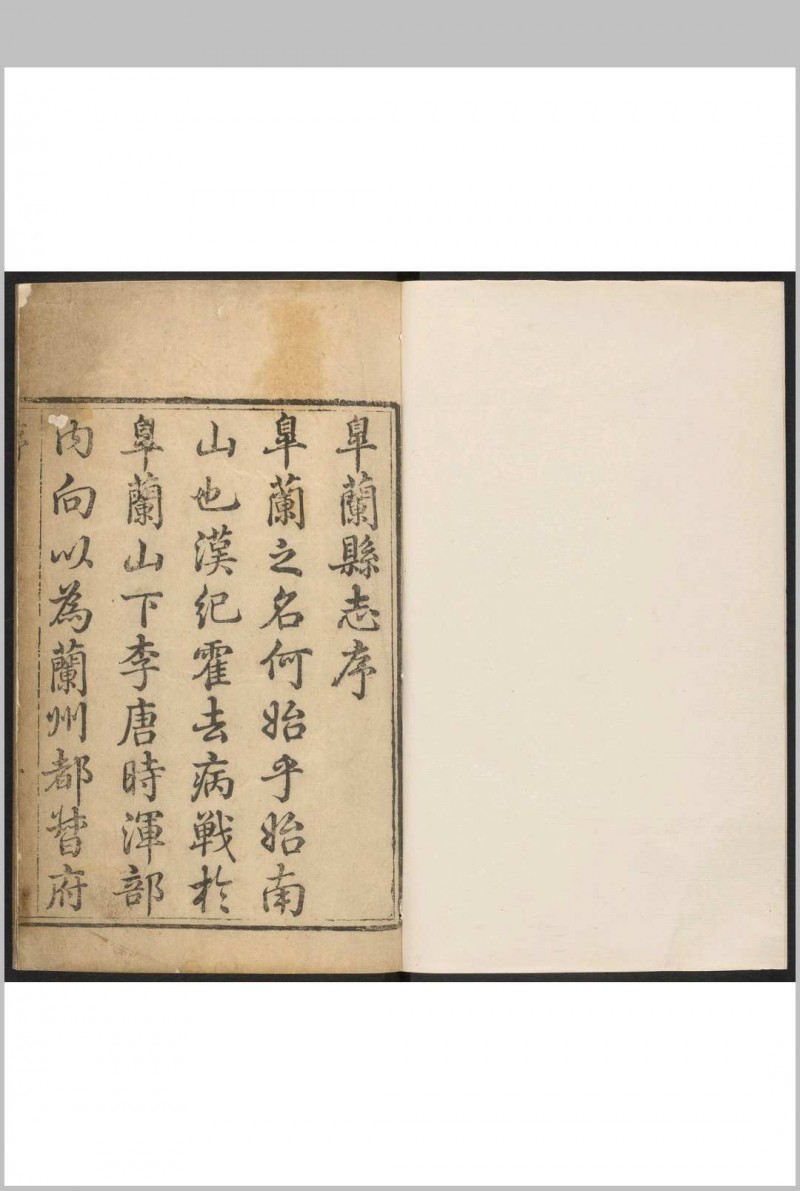 皐蘭縣志序
皐蘭之名何始乎始南
山也漢紀霍去病戰於
皐蘭山下李唐時渾部
內向以為蘭州都督府
序